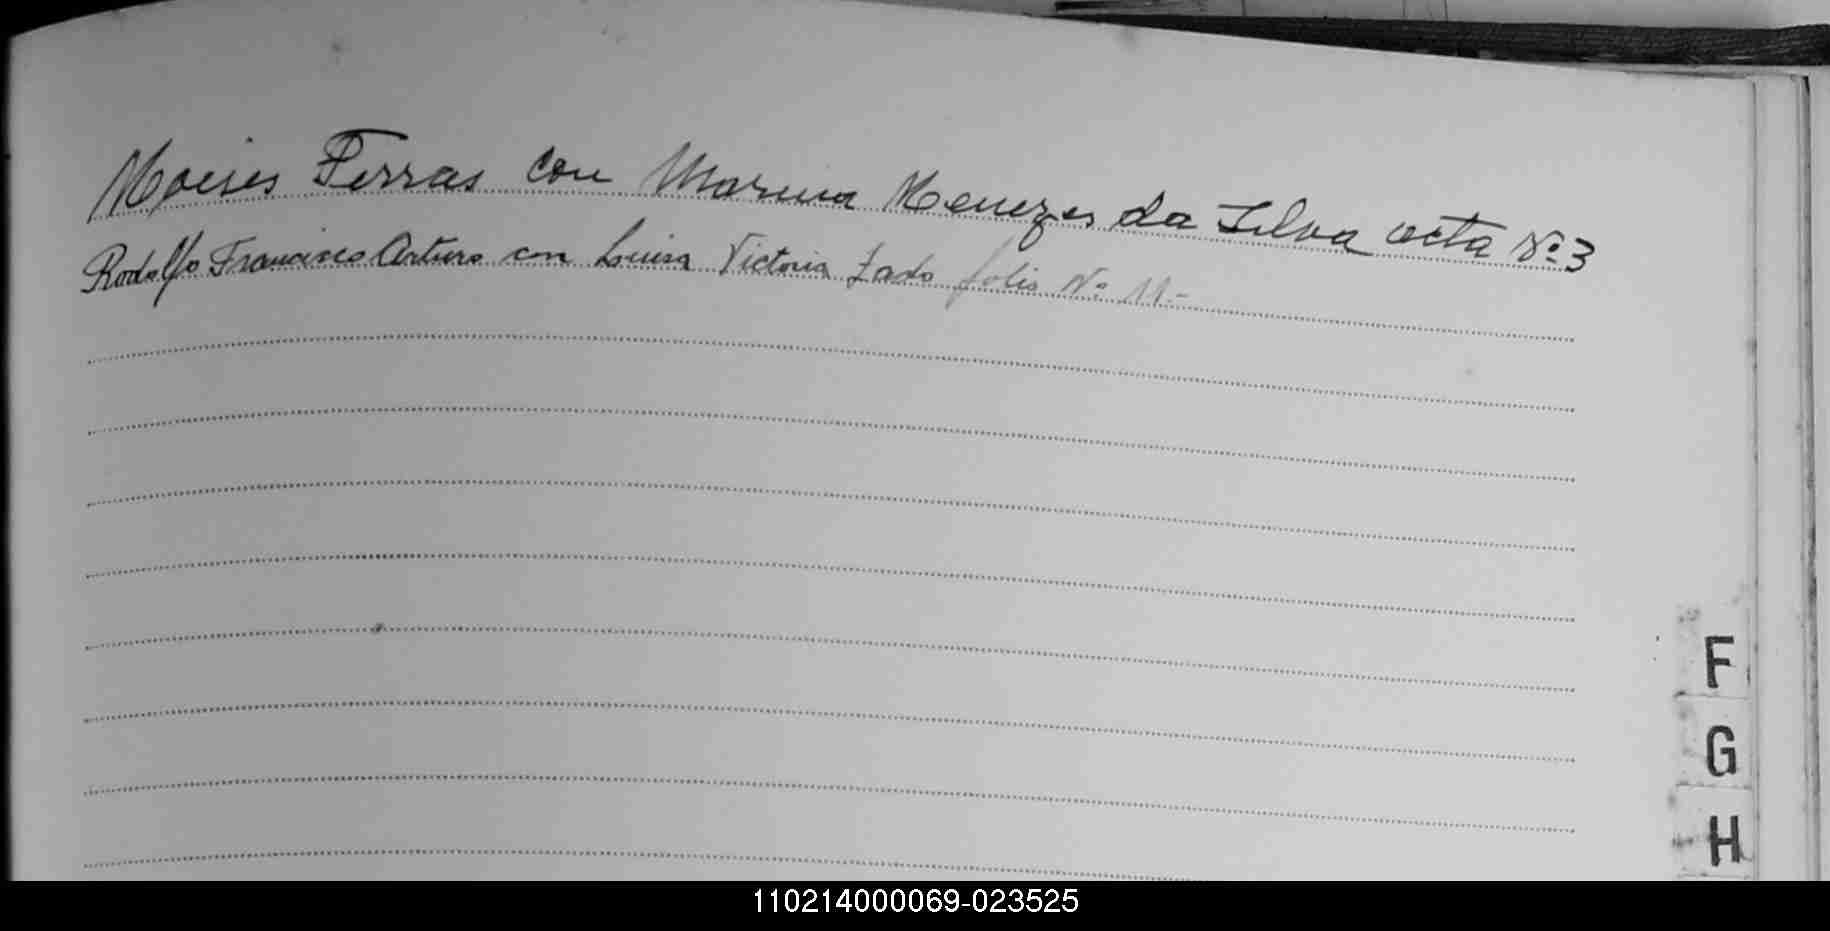 Moises Ferras con Marina Menezes da Silva acta Nº 3
Rodolfo Francisco Arturo con Luisa Victoria folio Nº 11.-
F
G
H
110214000069-023525